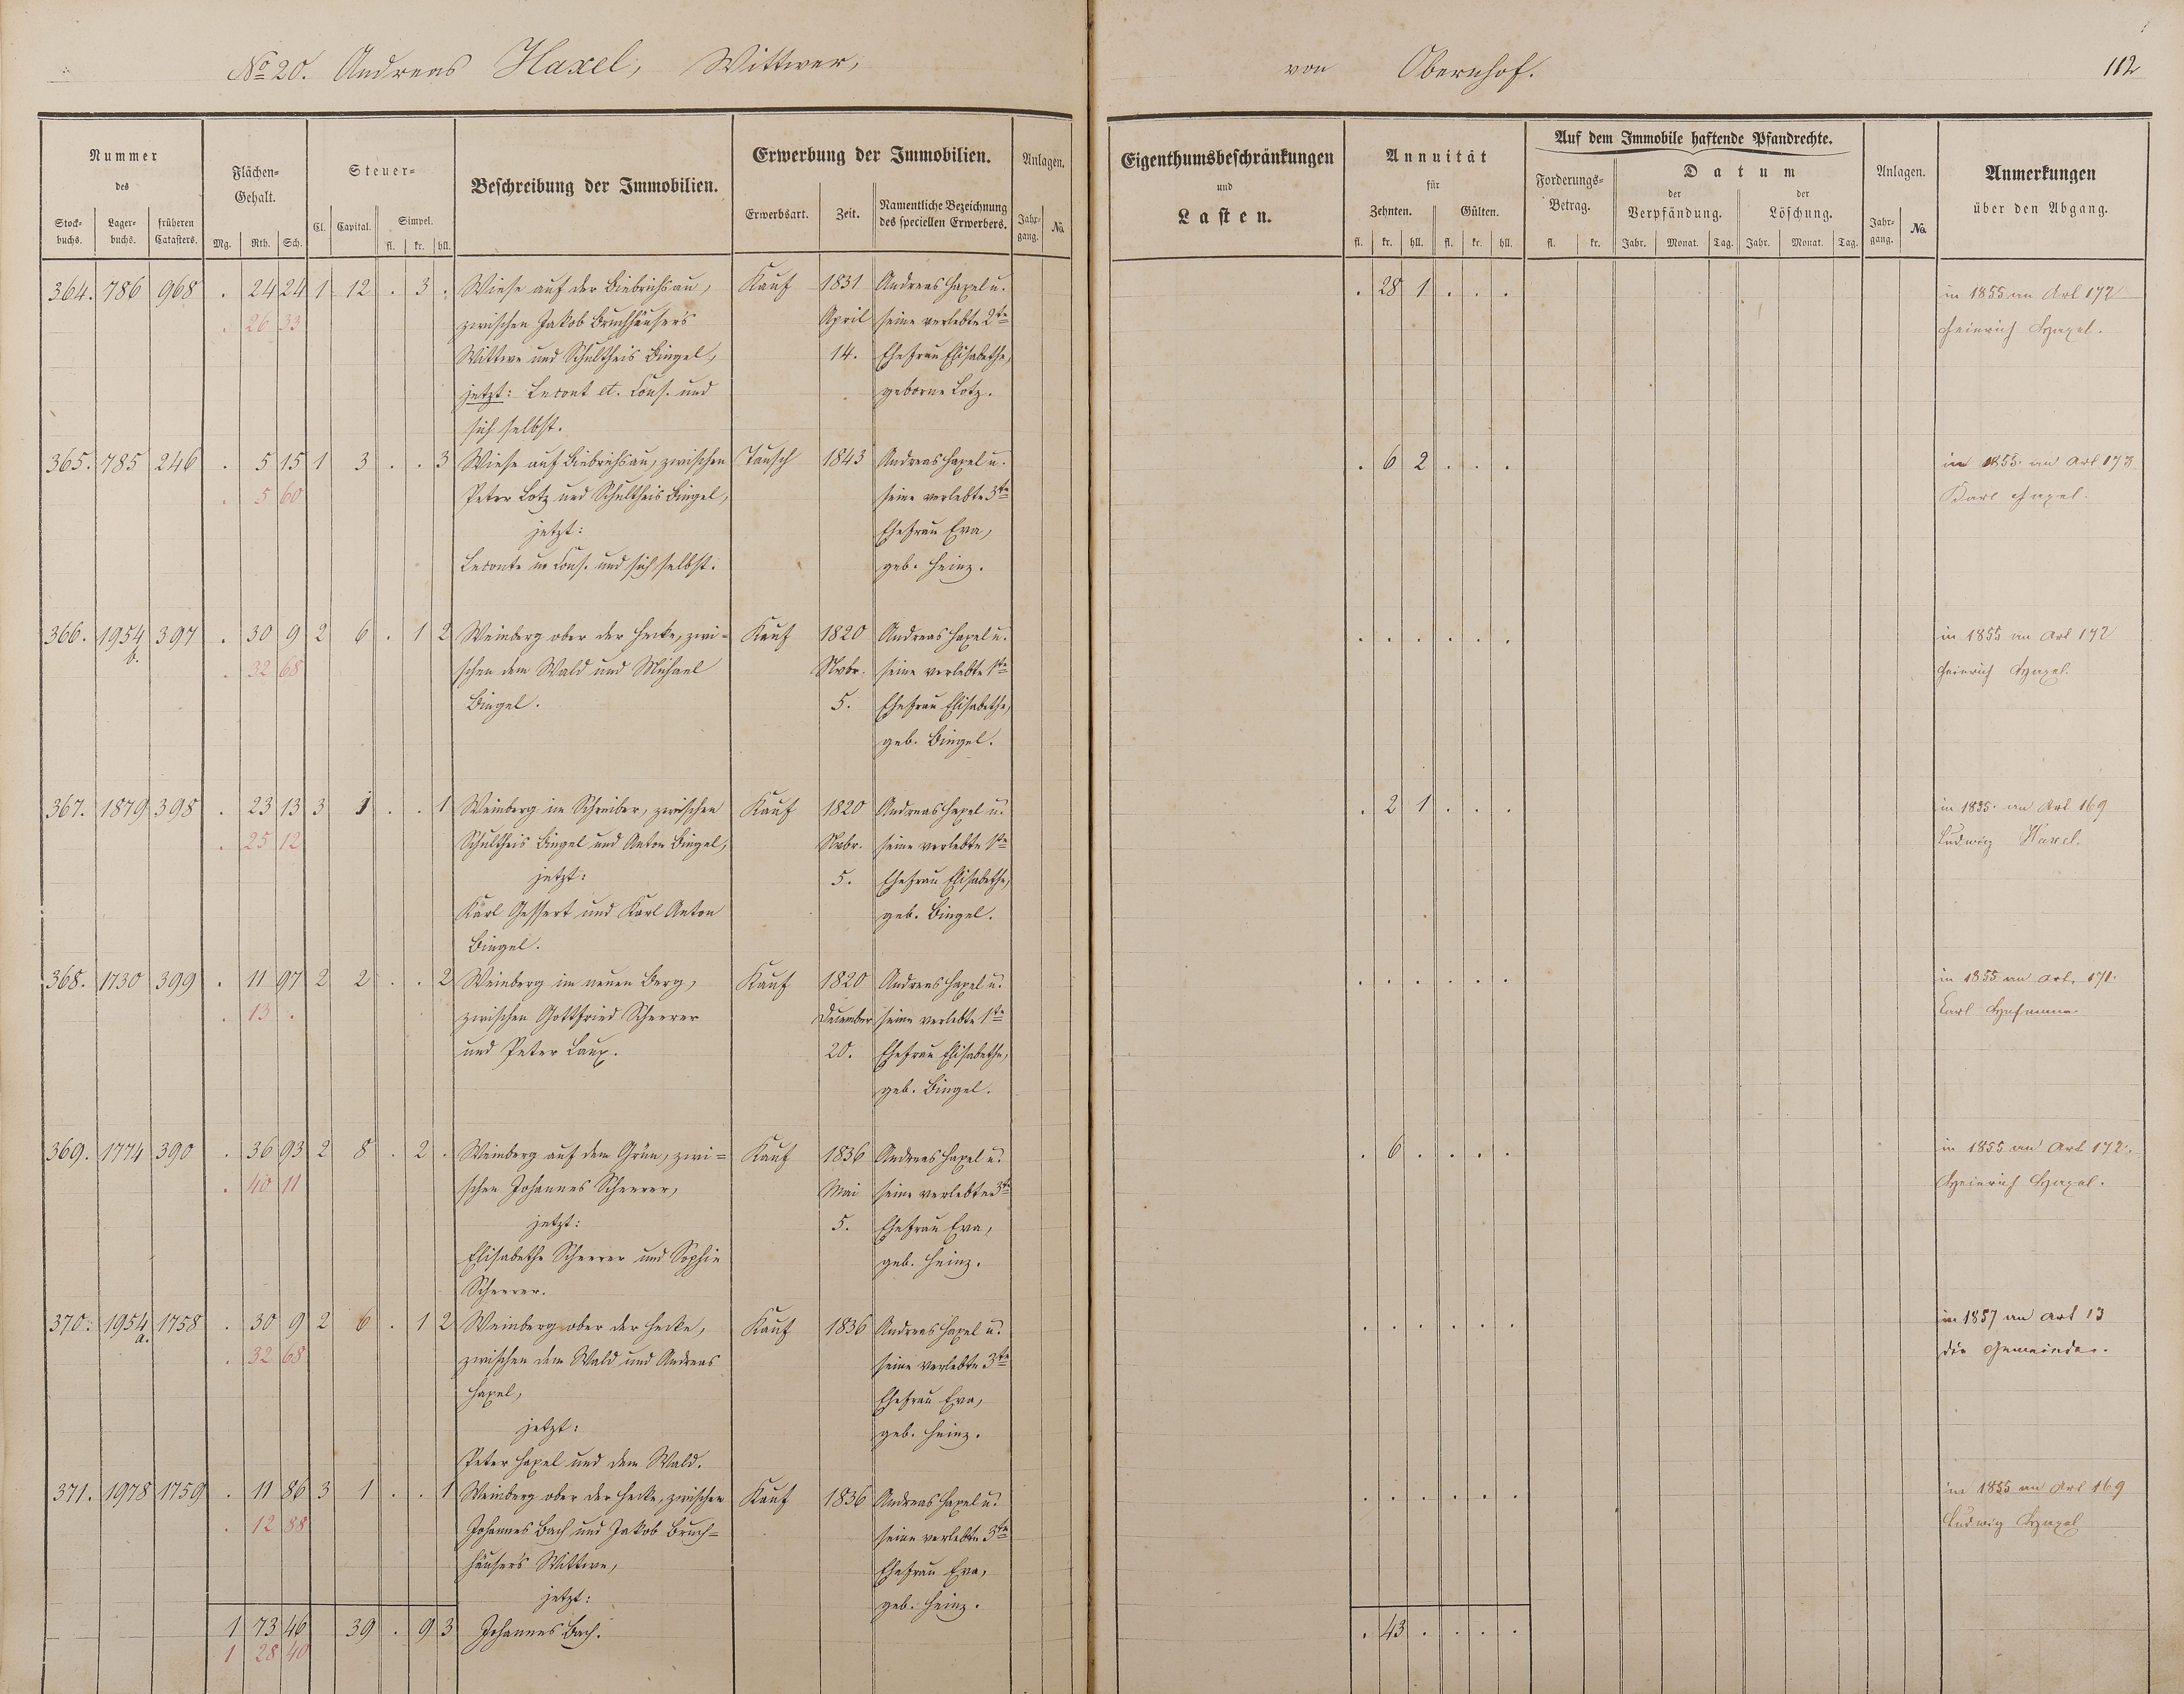 No 20. Andreas Haxel, Wittwer, von Obernhof. 112
Nummer des
Stock-buchs. Lager-buchs. früheren Catasters.
Flächen-Gehalt.
Mg. Rth. Sch.
Steuer-
Cl. Capital. Simpel.
fl. kr. hll.
Beschreibung der Immobilien.
Erwerbung der Immobilien.
Erwerbsart. Zeit. Namentliche Bezeichnung des speciellen Erwerbers.
Anlagen.
Jahr-gang. No.
Eigenthumsbeschränkungen
und
Lasten.
Annuität
für
Zehnten. Gülten.
fl. kr. hll. fl. kr. hll.
Auf dem Immobile haftende Pfandrechte.
Forderungs-Betrag.
fl. kr.
Datum
der Verpfändung. der Löschung.
Jahr. Monat. Tag. Jahr. Monat. Tag.
Anlagen.
Jahr-gang. No.
Anmerkungen
über den Abgang.
364. 786 968 . 24 24 1 12 . 3 . Wiese auf der Biebrichsau, Kauf 1831 Andreas Haxel u. . 28 1 . . . in 1855 an Art 172
. 26 33 zwischen Jakob Bruchhäusers April seine verlebte 2te Heinrich Haxel.
Wittwe und Schultheis Bingel, 14. Ehefrau Elisabethe,
jetzt: Lecont et. Cons. und geborne Lotz.
sich selbst.
365. 785 246 . 5 15 1 3 . . 3 Wiese auf Biebrichsau, zwischen Tausch 1843 Andreas Haxel u. . 6 2 . . . in 1855 an Art 173
. 5 60 Peter Lotz und Schultheis Bingel, seine verlebte 3te Karl Haxel.
jetzt: Ehefrau Eva,
Leconte u Cons. und sich selbst. geb. Heinz.
366. 1954 b. 397 . 30 9 2 6 . 1 2 Weinberg ober der Hecke, zwi- Kauf 1820 Andreas Haxel u. . . . . . . in 1855 an Art 172
. 32 68 schen dem Wald und Michael Novbr. seine verlebte 1te Heinrich Haxel.
Bingel. 5. Ehefrau Elisabethe,
geb. Bingel.
367. 1879 398 . 23 13 3 1 . . 1 Weinberg im Schreiber, zwischen Kauf 1820 Andreas Haxel u. . 2 1 . . . in 1855 an Art 169
. 25 12 Schultheis Bingel und Anton Bingel, Novbr. seine verlebte 1te Ludwig Haxel.
jetzt: 5. Ehefrau Elisabethe,
Karl Gessert und Karl Anton geb. Bingel.
Bingel.
368. 1730 399 . 11 97 2 2 . . 2 Weinberg im neuen Berg, Kauf 1820 Andreas Haxel u. . . . . . . in 1855 an Art. 171.
. 13 . zwischen Gottfried Scheerer December seine verlebte 1te Carl Hofmann
und Peter Laux. 20. Ehefrau Elisabethe,
geb. Bingel.
369. 1774 390 . 36 93 2 8 . 2 . Weinberg auf dem Grün, zwi- Kauf 1836 Andreas Haxel u. . 6 . . . . in 1855 an Art 172.
. 40 11 schen Johannes Scheerer, Mai seine verlebte 3te Heinrich Haxel.
jetzt: 5. Ehefrau Eva,
Elisabethe Scheerer und Sophie geb. Heinz.
Scheerer.
370. 1954 a. 1758 . 30 9 2 6 . 1 2 Weinberg ober der Hecke, Kauf 1836 Andreas Haxel u. . . . . . . in 1857 an Art 13
. 32 68 zwischen dem Wald und Andreas seine verlebte 3te die Gemeinde.
Haxel, Ehefrau Eva,
jetzt: geb. Heinz.
Peter Haxel und dem Wald.
371. 1978 1759 . 11 86 3 1 . . 1 Weinberg ober der Hecke, zwischen Kauf 1836 Andreas Haxel u. . . . . . . in 1855 an Art 169
. 12 88 Johannes Bach und Jakob Bruch- seine verlebte 3te Ludwig Haxel
häusers Wittwe, Ehefrau Eva,
jetzt: geb. Heinz.
1 73 46 39 . 9 3 Johannes Bach. . 43 . . . .
1 28 40